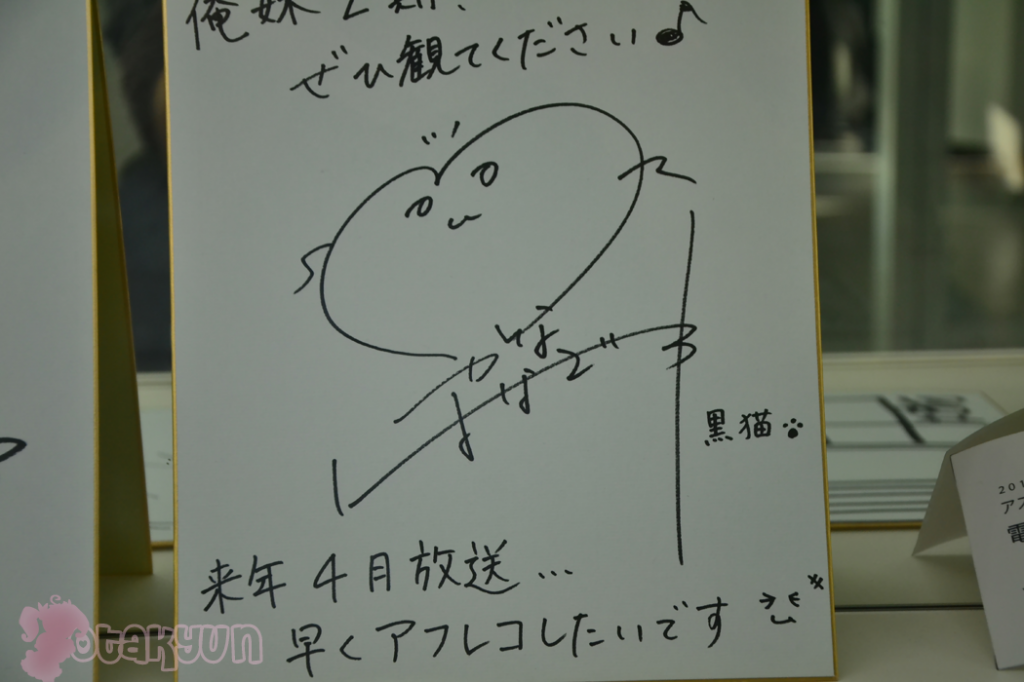 俺妹2期、
ぜひ観てください♪
かな
はなざ
黒猫
来年4月放送...
早くアフレコしたいです
201
アフ
電
otakyun